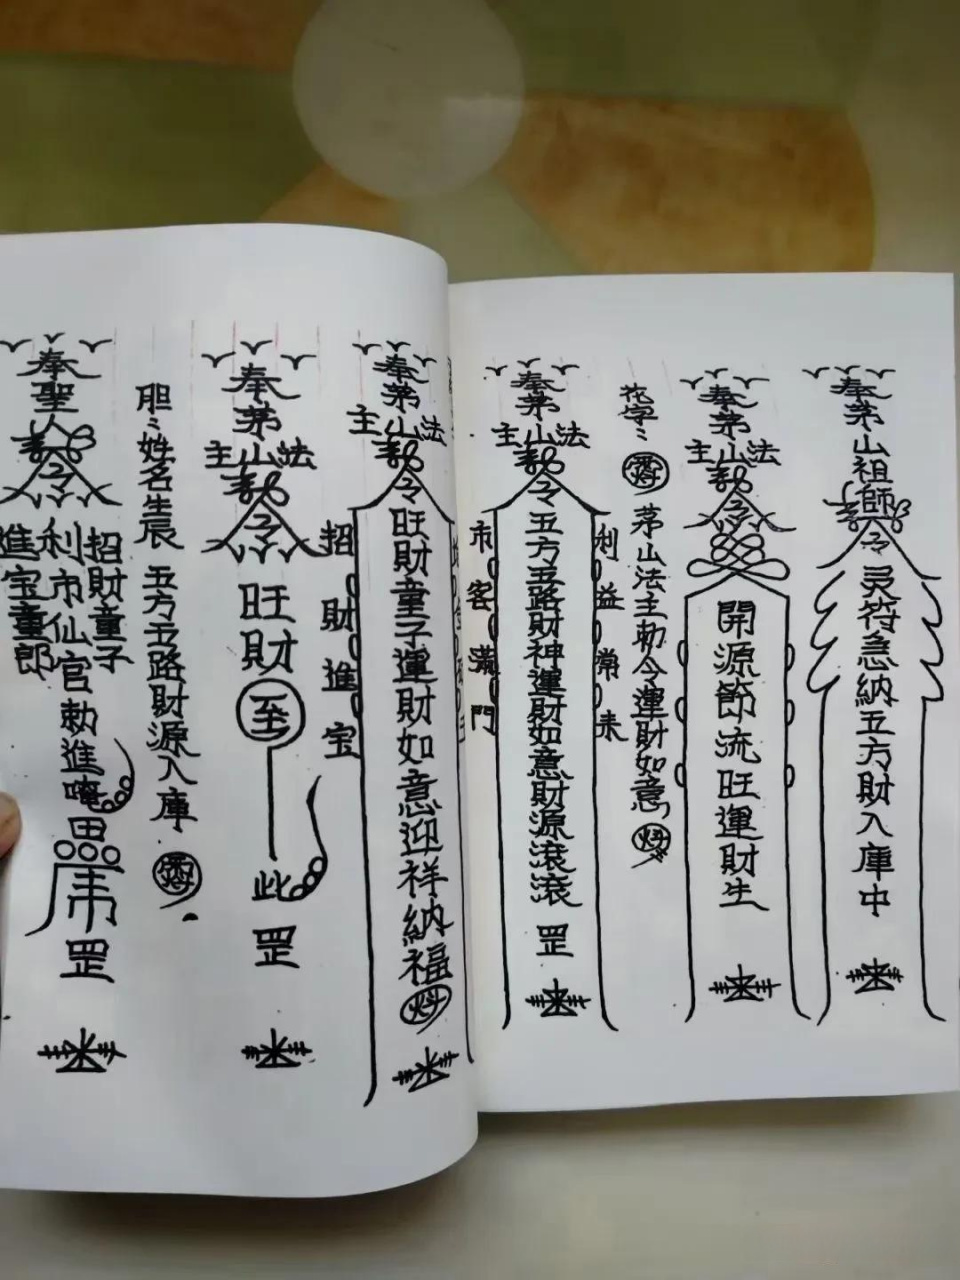 奉茅山祖師
令
灵符急納五方財入庫中
奉茅山法主
令
開源節流旺運財生
花字:
茅山法主勅令運財如意
奉茅山法主
令
利益常来
五方五路財神運財如意財源滾滾
罡
市客滿門
奉茅山法主
令
旺財童子運財如意迎祥納福
招財進宝
奉茅山法主
令
旺財
至
此
罡
胆:姓名生辰
五方五路財源入庫
奉聖人
令
招財童子
利市仙官勅進唵
進宝童郎
罡